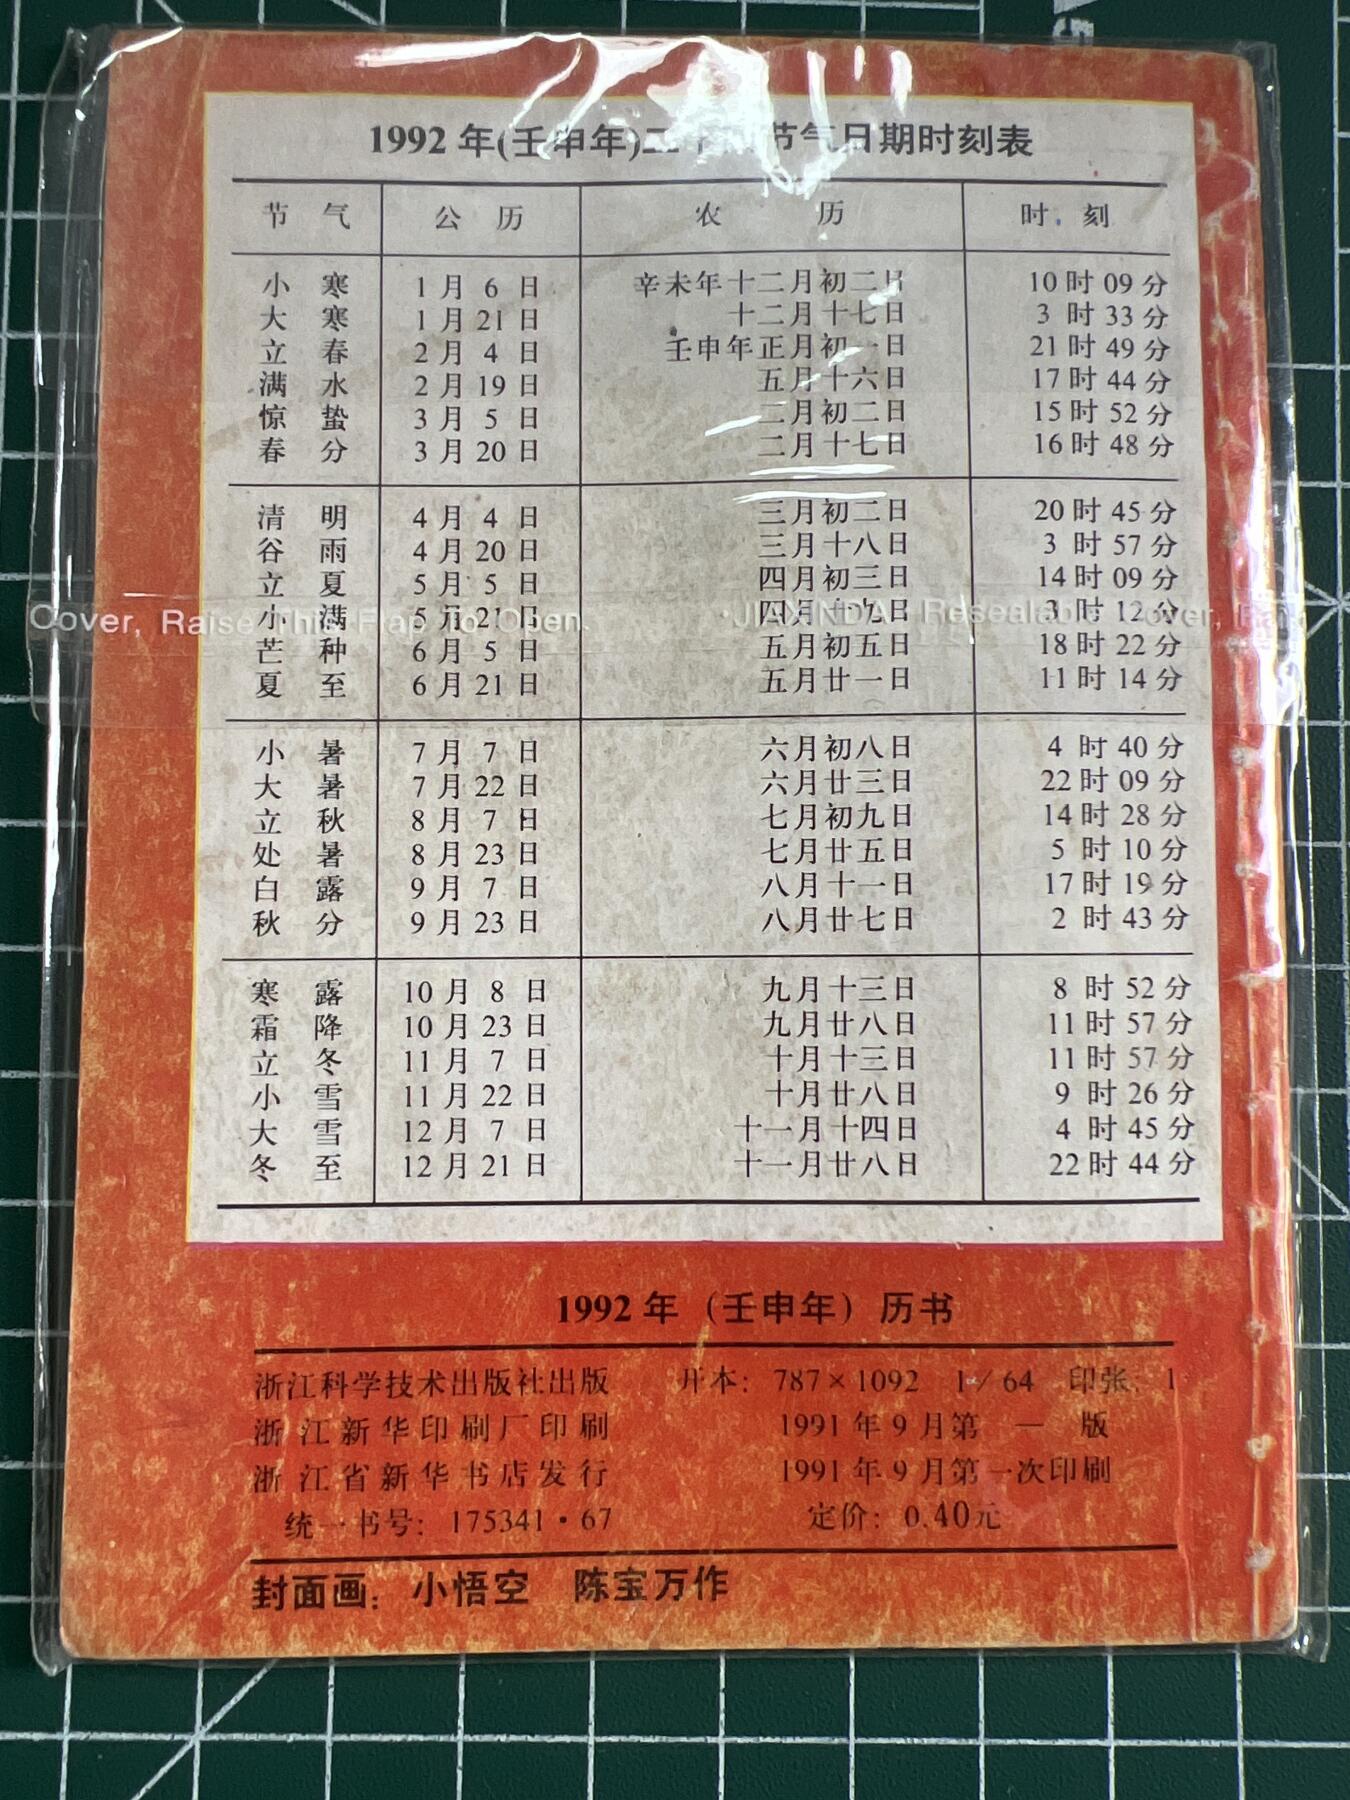 1992 年(壬申年)二十四节气日期时刻表
节 气 公 历 农 历 时 刻
小 寒 1 月 6 日 辛未年十二月初二日 10 时 09 分
大 寒 1 月 21 日 十二月十七日 3 时 33 分
立 春 2 月 4 日 壬申年正月初一日 21 时 49 分
满 水 2 月 19 日 五月十六日 17 时 44 分
惊 蛰 3 月 5 日 二月初二日 15 时 52 分
春 分 3 月 20 日 二月十七日 16 时 48 分
清 明 4 月 4 日 三月初二日 20 时 45 分
谷 雨 4 月 20 日 三月十八日 3 时 57 分
立 夏 5 月 5 日 四月初三日 14 时 09 分
小 满 5 月 21 日 四月十九日 3 时 12 分
Cover, Raise This Flap To Open. Resealable Cover,
芒 种 6 月 5 日 五月初五日 18 时 22 分
夏 至 6 月 21 日 五月廿一日 11 时 14 分
小 暑 7 月 7 日 六月初八日 4 时 40 分
大 暑 7 月 22 日 六月廿三日 22 时 09 分
立 秋 8 月 7 日 七月初九日 14 时 28 分
处 暑 8 月 23 日 七月廿五日 5 时 10 分
白 露 9 月 7 日 八月十一日 17 时 19 分
秋 分 9 月 23 日 八月廿七日 2 时 43 分
寒 露 10 月 8 日 九月十三日 8 时 52 分
霜 降 10 月 23 日 九月廿八日 11 时 57 分
立 冬 11 月 7 日 十月十三日 11 时 57 分
小 雪 11 月 22 日 十月廿八日 9 时 26 分
大 雪 12 月 7 日 十一月十四日 4 时 45 分
冬 至 12 月 21 日 十一月廿八日 22 时 44 分
1992 年（壬申年）历书
浙江科学技术出版社出版 开本：787×1092 1／64 印张：1
浙江新华印刷厂印刷 1991 年 9 月第 一 版
浙江省新华书店发行 1991 年 9 月第一次印刷
统一书号：175341·67 定价：0.40元
封面画：小悟空 陈宝万作